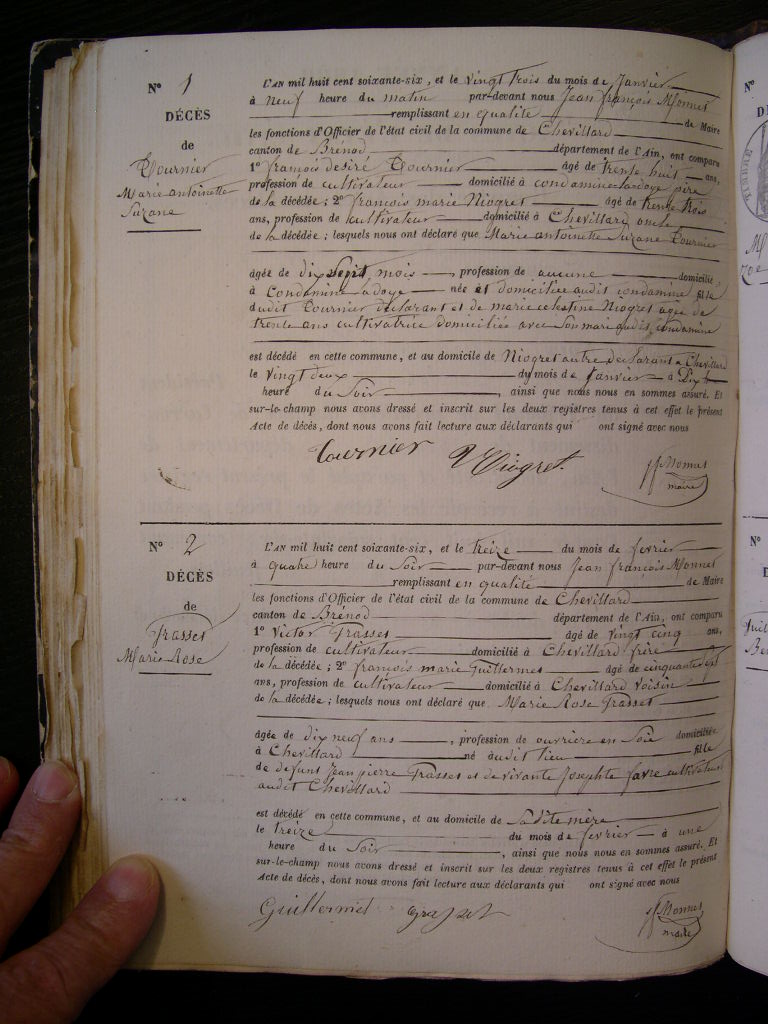 N° 1
DÉCÈS
de
Tournier
Marie antoinette
Suzane
L'AN mil huit cent soixante-six, et le vingt trois du mois de Janvier
à neuf heure du matin par-devant nous Jean françois Monnet
remplissant en qualité de Maire
les fonctions d'Officier de l'état civil de la commune de Chevillard
canton de Brénod département de l'Ain, ont comparu
1° françois desiré Tournier âgé de trente huit ans,
profession de cultivateur domicilié à condamine ladoye père
de la décédée ; 2° françois marie Niogret âgé de trente trois
ans, profession de cultivateur domicilié à Chevillard oncle
de la décédée ; lesquels nous ont déclaré que Marie antoinette Suzane Tournier
âgée de dix sept mois , profession de aucune domiciliée
à Condamine ladoye née et domiciliée audit condamine fille
dudit Tournier déclarant et de marie celestine Niogret agée de
trente ans cultivatrice domiciliée avec son mari audit condamine
est décédé en cette commune, et au domicile de Niogret autre déclarant a Chevillard
le vingt deux du mois de janvier à Dix
heure du Soir , ainsi que nous nous en sommes assuré. Et
sur-le-champ nous avons dressé et inscrit sur les deux registres tenus à cet effet le présent
Acte de décès, dont nous avons fait lecture aux déclarants qui ont signé avec nous
Tournier Niogret Jf Monnet
maire
N° 2
DÉCÈS
de
Grasset
Marie Rose
L'AN mil huit cent soixante-six, et le treize du mois de fevrier
à quatre heure du Soir par-devant nous Jean françois Monnet
remplissant en qualité de Maire
les fonctions d'Officier de l'état civil de la commune de Chevillard
canton de Brénod département de l'Ain, ont comparu
1° Victor Grasset âgé de vingt cinq ans,
profession de cultivateur domicilié à Chevillard frère
de la décédée ; 2° françois marie Guillermet âgé de cinquante
ans, profession de cultivateur domicilié à Chevillard voisin
de la décédée ; lesquels nous ont déclaré que Marie Rose Grasset
âgée de dix neuf ans , profession de ouvrière en Soie domiciliée
à Chevillard né audit lieu fille
de défunt Jean pierre Grasset et de vivante Josephte favre cultivateurs
audit Chevillard
est décédé en cette commune, et au domicile de Sadite mère
le treize du mois de fevrier à une
heure du Soir , ainsi que nous nous en sommes assuré. Et
sur-le-champ nous avons dressé et inscrit sur les deux registres tenus à cet effet le présent
Acte de décès, dont nous avons fait lecture aux déclarants qui ont signé avec nous
Guillermet grasset Jf Monnet
maire